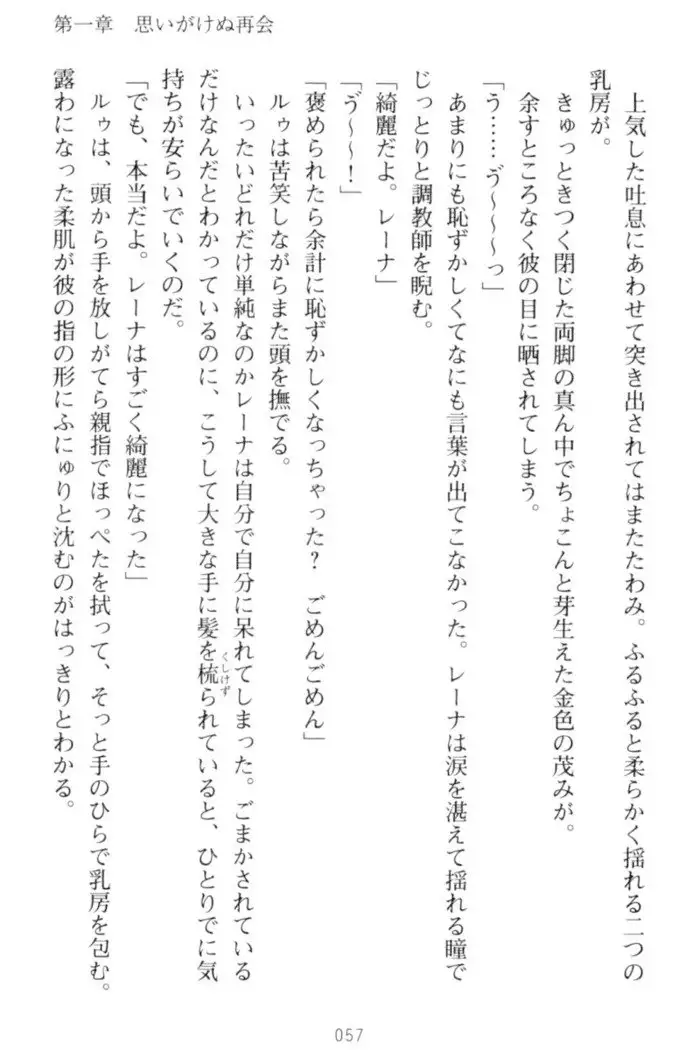 第一章　思いがけぬ再会
　上気した吐息にあわせて突き出されてはまたたわみ。ふるふると柔らかく揺れる二つの
乳房が。
　きゅっときつく閉じた両脚の真ん中でちょこんと芽生えた金色の茂みが。
　余すところなく彼の目に晒されてしまう。
「う……ゔ～～～っ」
　あまりにも恥ずかしくてなにも言葉が出てこなかった。レーナは涙を湛えて揺れる瞳で
じっとりと調教師を睨む。
「綺麗だよ。レーナ」
「ゔ～～！」
「褒められたら余計に恥ずかしくなっちゃった？　ごめんごめん」
　ルゥは苦笑しながらまた頭を撫でる。
　いったいどれだけ単純なのかレーナは自分で自分に呆れてしまった。ごまかされている
だけなんだとわかっているのに、こうして大きな手に髪を梳られていると、ひとりでに気
くしけず
持ちが安らいでいくのだ。
「でも、本当だよ。レーナはすごく綺麗になった」
　ルゥは、頭から手を放しがてら親指でほっぺたを拭って、そっと手のひらで乳房を包む。
露わになった柔肌が彼の指の形にふにゅりと沈むのがはっきりとわかる。
057